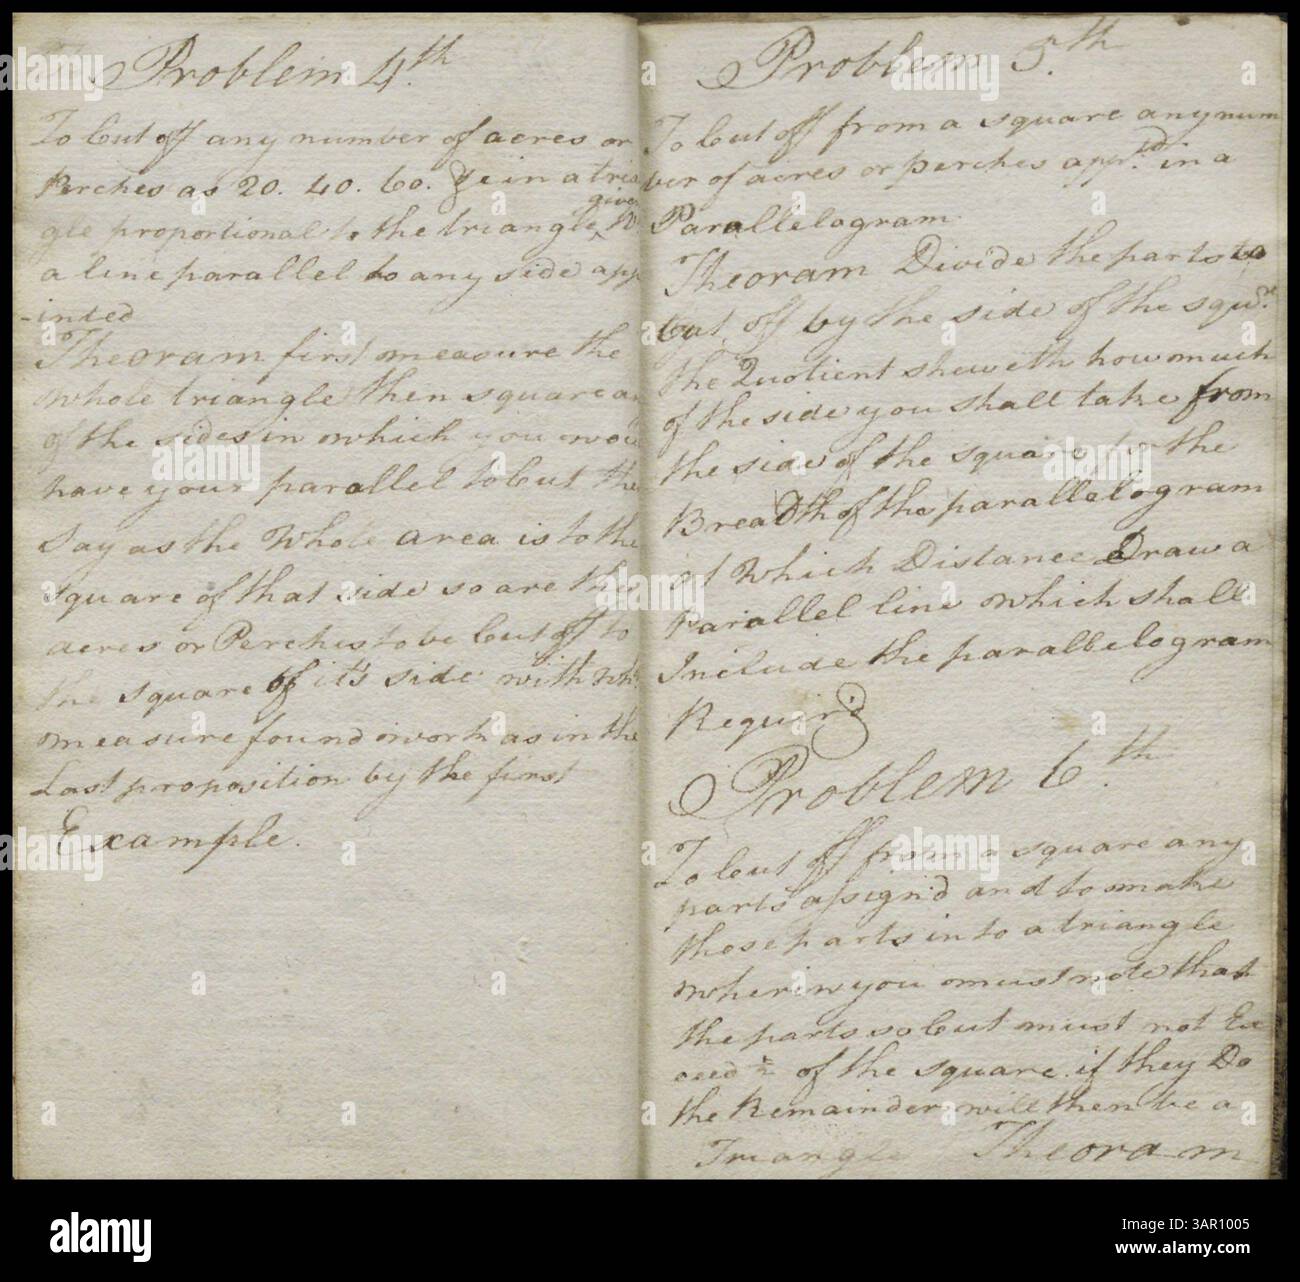 Problem 4th
To Cut off any number of acres or
Perches as 20. 40. 60. &c in a trian
gle proportional to the triangle given by
a line parallel to any side app
-inted
Theoram first measure the
whole triangle then square any
of the sides in which you woud
have your parallel to Cut then
Say as the Whole area is to the
square of that side so are the
acres or Perches to be Cut off to
the square of it's side with wh.
measure found work as in the
Last proposition by the first
Example.
Problem 5.th
To Cut off from a square any num
ber of acres or perches app.td in a
Parallelogram
Theoram Divide the parts to
Cut off by the side of the squ.re
the Quotient sheweth how much
of the side you shall take from
the side of the square for the
Breadth of the parallelogram
at Which Distance Draw a
Parallel line which shall
Include the parallelogram
Requir'd
Problem 6.th
To Cut off from a square any
parts assign'd and to make
those parts into a triangle
wherin you must note that
the parts so Cut must not Ex
ceed ½ of the square. if they Do
the Remainder will then be a
Triangle Theoram
alamy
Image ID: 3AR1005
www.alamy.com